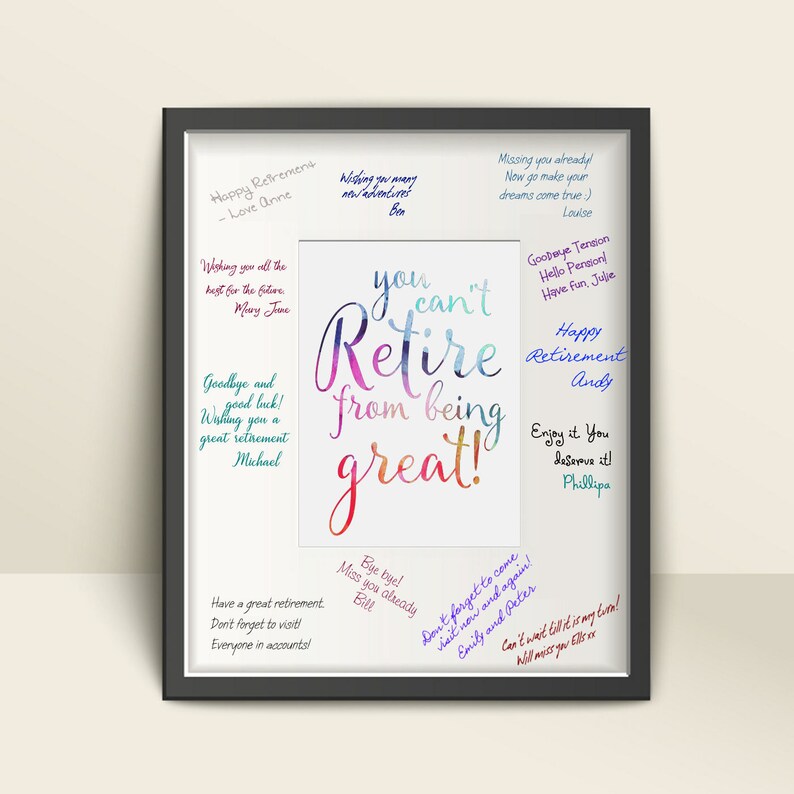 Happy Retirement
- Love Anne
Wishing you many
new adventures
Ben
Missing you already!
Now go make your
dreams come true :)
Louise
Wishing you all the
best for the future.
Mary Jane
Goodbye Tension
Hello Pension!
Have fun, Julie
you
can't
Retire
from being
great!
Happy
Retirement
Andy
Goodbye and
good luck!
Wishing you a
great retirement
Michael
Enjoy it You
deserve it!
Phillipa
Have a great retirement.
Don't forget to visit!
Everyone in accounts!
Bye bye!
Miss you already
Bill
Don't forget to come
visit now and again!
Emily and Peter
Can't wait till it is my turn!
Will miss you Ells xx